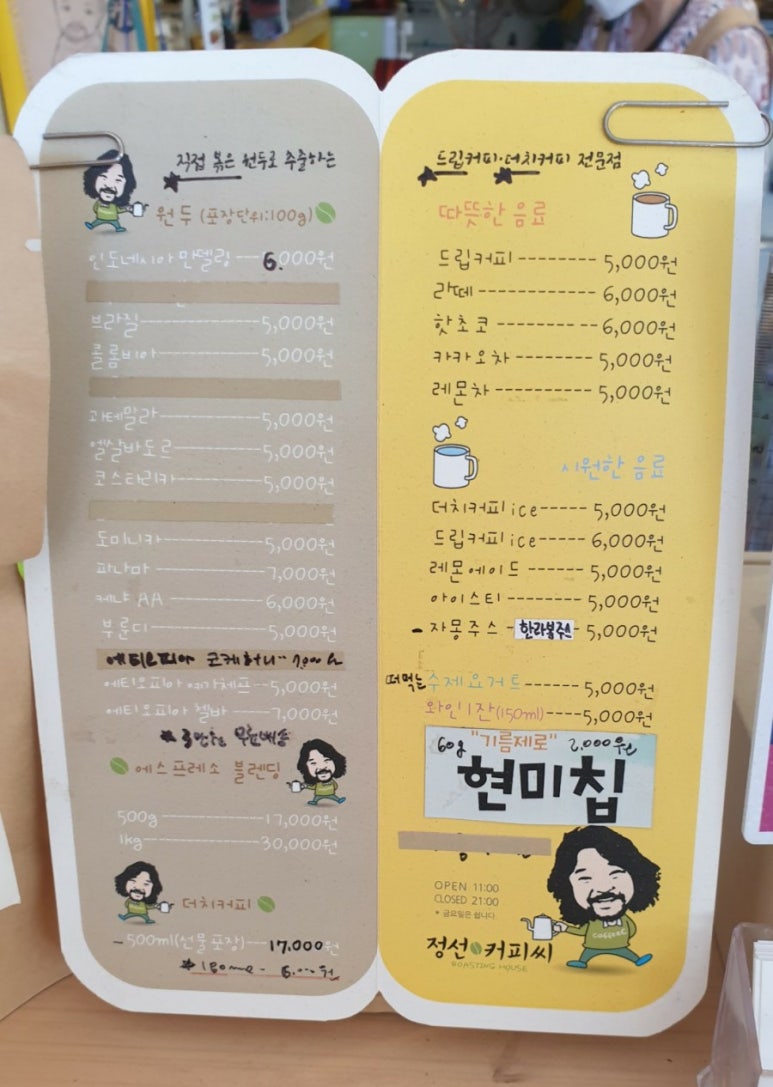 직접 볶은 원두로 추출하는
원두 (포장단위:100g)
인도네시아 만델링 --- 6.000원
브라질 ---------- 5,000원
콜롬비아 --------- 5,000원
과테말라 --------- 5,000원
엘살바도르 -------- 5,000원
코스타리카 -------- 5,000원
도미니카 --------- 5,000원
파나마 ---------- 7,000원
케냐 AA --------- 6,000원
부룬디 ---------- 5,000원
에티오피아 코케허니-- 7,000원
에티오피아 예가체프 -- 5,000원
에티오피아 첼바 ---- 7,000원
3만원 무료배송
에스프레소 블렌딩
500g ---------- 17,000원
1kg ----------- 30,000원
더치커피
- 500ml(선물포장) --- 17.000원
드립커피·더치커피 전문점
따뜻한 음료
드립커피 -------- 5,000원
라떼 ---------- 6,000원
핫초코 -------- -- 6,000원
카카오차 -------- 5,000원
레몬차 ---------- 5,000원
시원한 음료
더치커피ice ----- 5,000원
드립커피ice ----- 6,000원
레몬에이드 ------ 5,000원
아이스티 -------- 5,000원
- 자몽주스 - 한라봉주스 - 5,000원
떠먹는 수제요거트 ----- 5,000원
와인1잔(150ml) ---- 5,000원
60g "기름제로" 2,000원
현미칩
OPEN 11:00
CLOSED 21:00
* 금요일은 쉽니다
COFFEEC
정선 커피씨
ROASTING HOUSE